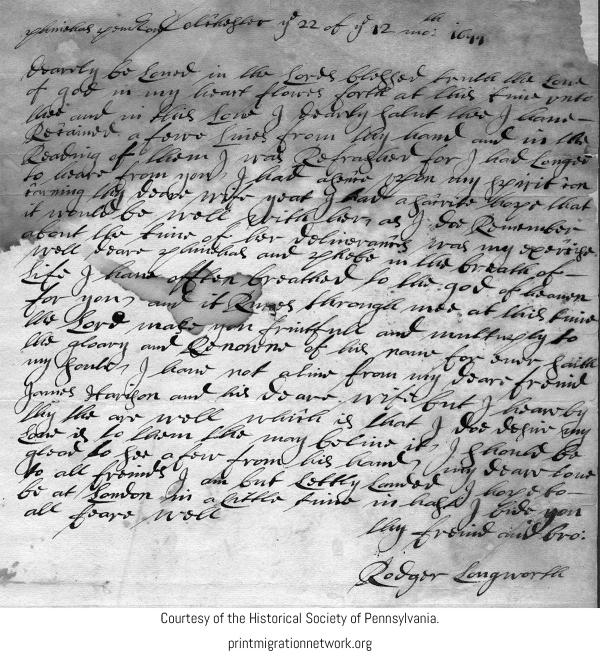 phinehas pemberton Colchester ye 22 of ye 12 mo: th
dearly be loved in the lords blessed truth the Love
of god in my heart flowes forth at this time unto
thee and in this Love I dearly salut thee I have
Receaved a fewe lines from thy hand and in the
Reading of them I was Refrashed for I had longed
to heare from you I had a sence upon my spirit con
cerning thy deare wife yeat I had a secrite hope that
it would be well with her, as I doe Remember
about the time of her deliverance was my exercise
well deare phinehas and phebe in the breath of
Life I have offten breathed to the god of heaven
for you, and it Runes through mee at this time
the Lord make you fruitfull and multuply to
the gloary and Renowne of his name for ever saith
my soule, I have not a line from my deare freind
James Harison and his deare wife but I heare by
thy the are well which is that I doe desire my
Love is to them the may beline it, I should be
glead to see a few from his hand, my deare love
to all freinds I am but Lettly Landed I hope to
be at London in a little time in hast I bide you
all feare well
thy freind and bro:
Rodger Longworth
Courtesy of the Historical Society of Pennsylvania.
printmigrationnetwork.org